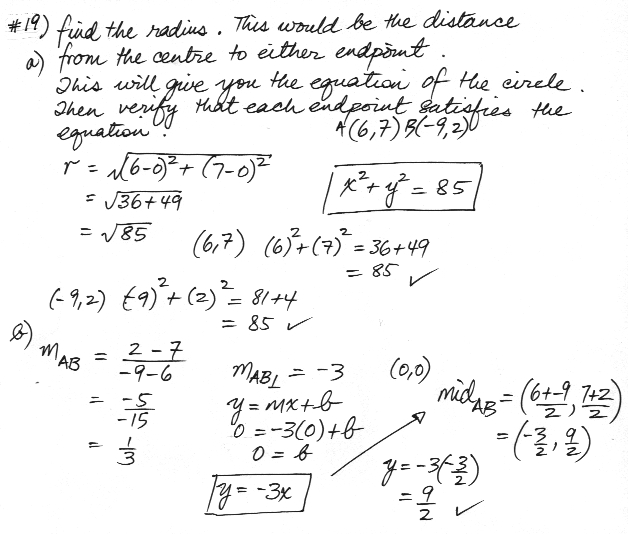 #19) find the radius. This would be the distance
a) from the centre to either endpoint.
This will give you the equation of the circle.
Then verify that each endpoint satisfies the
equation. A(6,7) B(-9,2)
r = √(6-0)² + (7-0)²
= √36+49
= √85
x² + y² = 85
(6,7) (6)² + (7)² = 36+49
= 85 ✓
(-9,2) (-9)² + (2)² = 81+4
= 85 ✓
b) m_AB = (2-7)/(-9-6)
= -5/-15
= 1/3
m_AB⊥ = -3 (0,0)
y = mx+b
0 = -3(0)+b
0 = b
y = -3x
mid_AB = ((6+-9)/2, (7+2)/2)
= (-3/2, 9/2)
y = -3(-3/2)
= 9/2 ✓